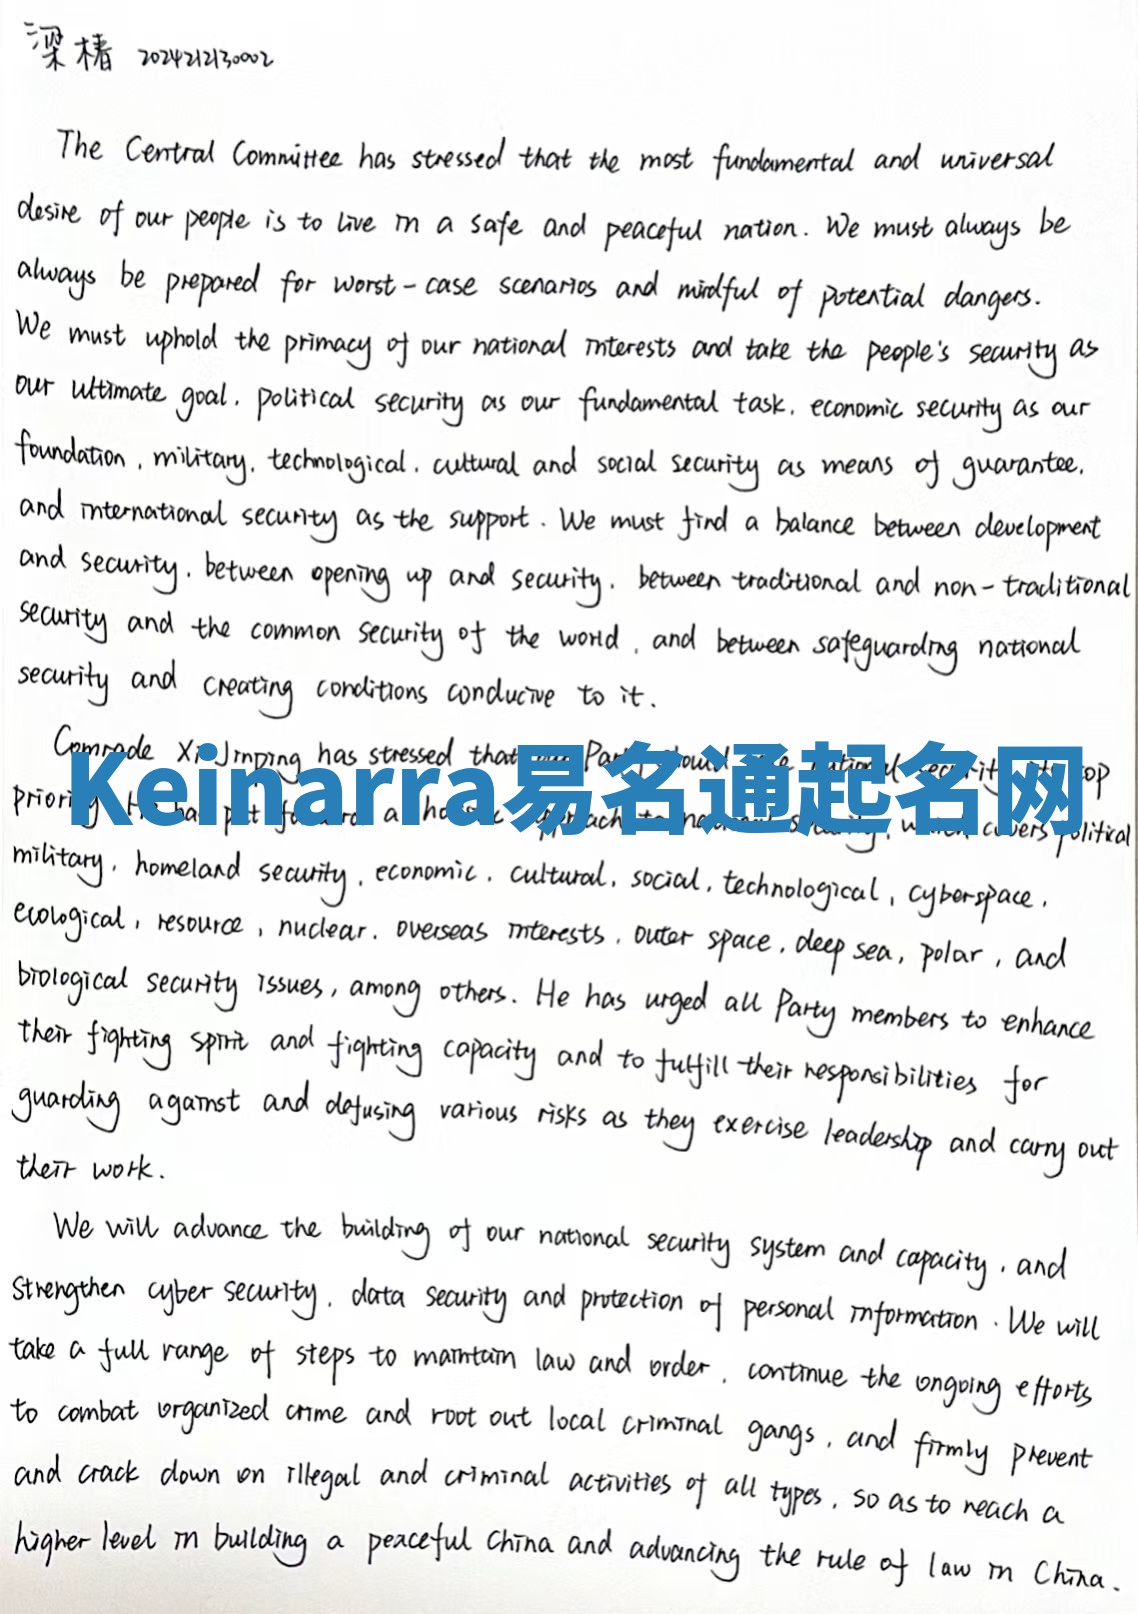 梁椿 2024212130002
The Central Committee has stressed that the most fundamental and universal
desire of our people is to live in a safe and peaceful nation. We must always be
always be prepared for worst-case scenarios and mindful of potential dangers.
We must uphold the primacy of our national interests and take the people's security as
our ultimate goal, political security as our fundamental task, economic security as our
foundation, military, technological, cultural and social security as means of guarantee,
and international security as the support. We must find a balance between development
and security, between opening up and security, between traditional and non-traditional
security and the common security of the world, and between safeguarding national
security and creating conditions conducive to it.
Comrade Xi Jinping has stressed that Party national security top
Keinarra易名通起名网
priority. He has put forward a holistic approach to national security, which covers political
military, homeland security, economic, cultural, social, technological, cyberspace,
ecological, resource, nuclear, overseas interests, outer space, deep sea, polar, and
biological security issues, among others. He has urged all Party members to enhance
their fighting spirit and fighting capacity and to fulfill their responsibilities for
guarding against and defusing various risks as they exercise leadership and carry out
their work.
We will advance the building of our national security system and capacity, and
strengthen cyber security, data security and protection of personal information. We will
take a full range of steps to maintain law and order, continue the ongoing efforts
to combat organized crime and root out local criminal gangs, and firmly prevent
and crack down on illegal and criminal activities of all types, so as to reach a
higher level in building a peaceful China and advancing the rule of law in China.